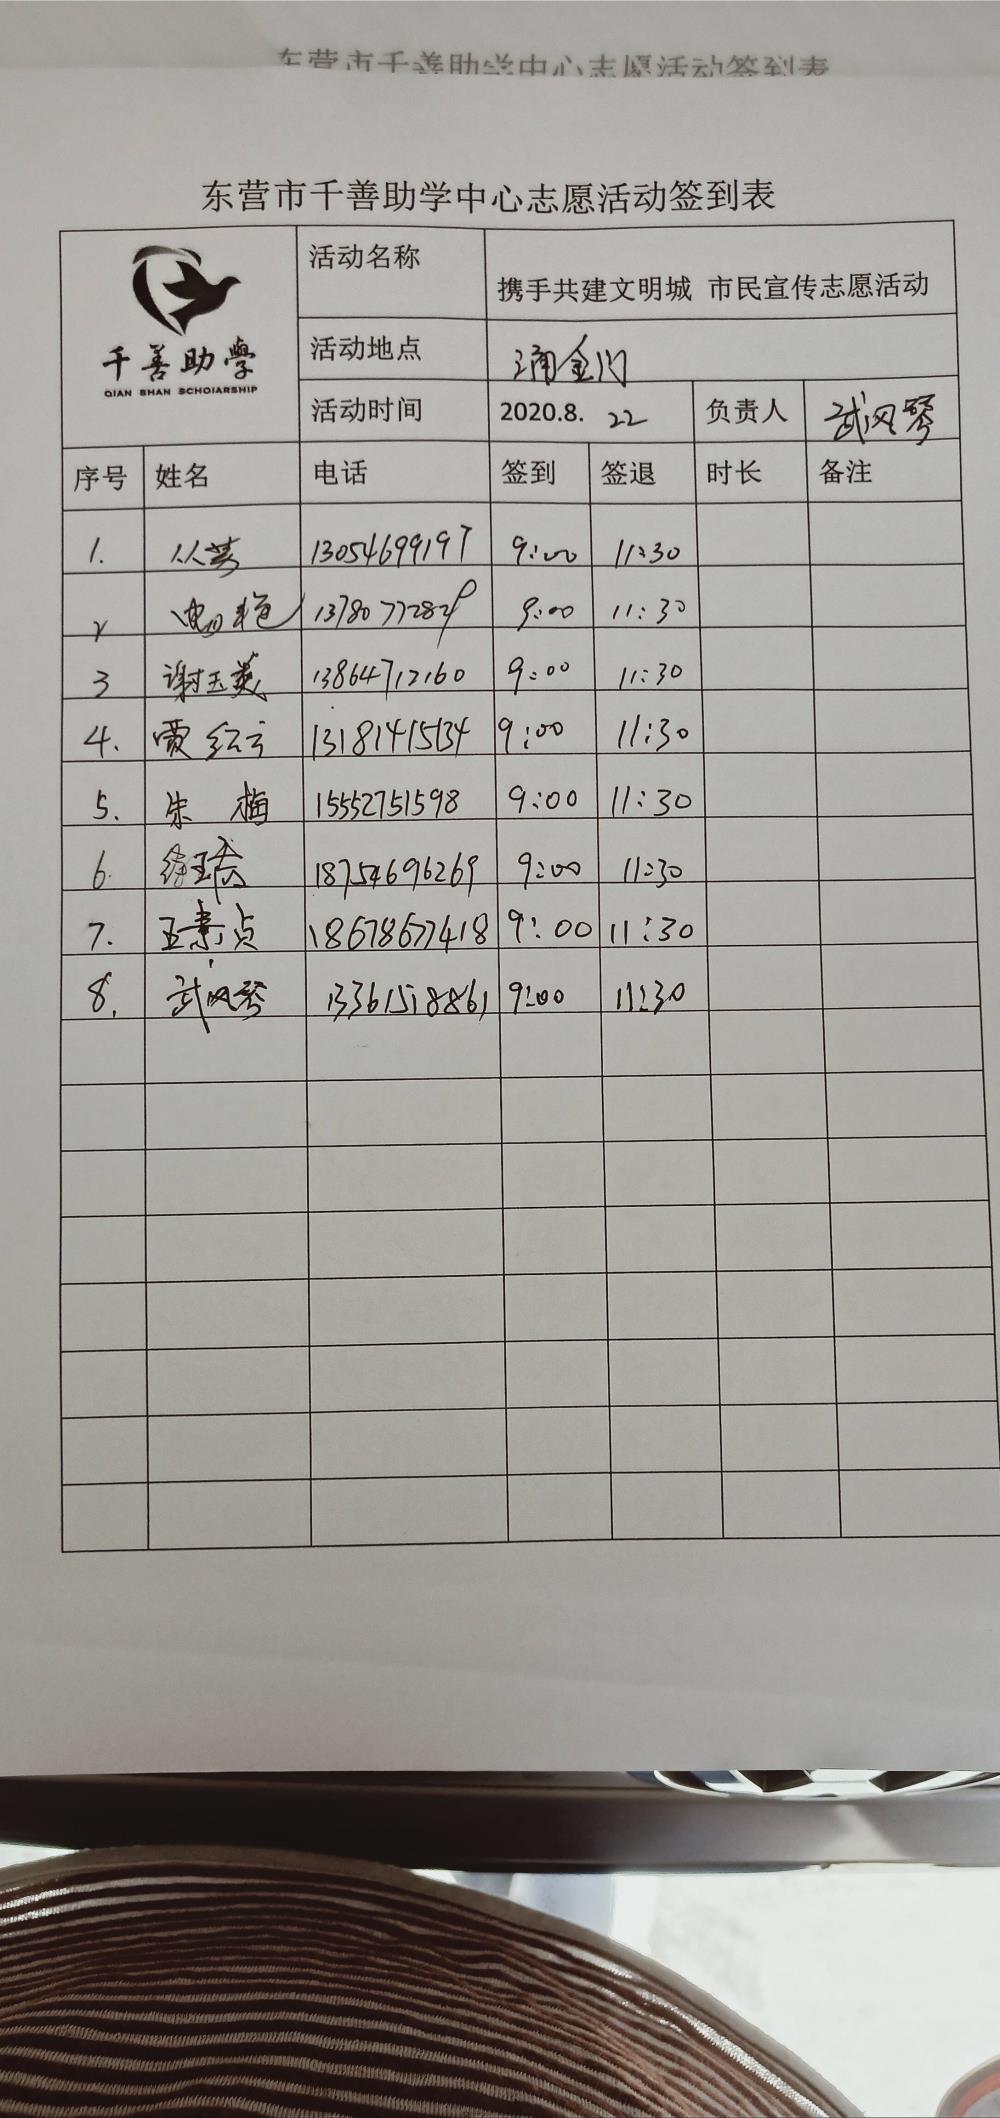 东营市千善助学中心志愿活动签到表
东营市千善助学中心志愿活动签到表
千善助學
QIAN SHAN SCHOIARSHIP
活动名称 携手共建文明城 市民宣传志愿活动
活动地点 涌金门
活动时间 2020.8. 22 负责人 武风琴
序号 姓名 电话 签到 签退 时长 备注
1. 13054699197 9:00 11:30
2 13780772829 9:00 11:30
3 谢玉英 13864712160 9:00 11:30
4. 贾红云 13181415134 9:00 11:30
5. 朱梅 15552751598 9:00 11:30
6. 18754696269 9:00 11:30
7. 王素贞 18678677418 9:00 11:30
8. 武风琴 13361518861 9:00 11:30